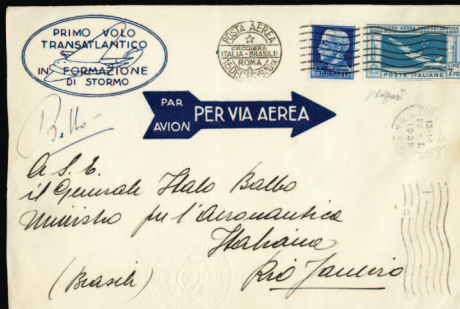 PRIMO VOLO
TRANSATLANTICO
IN FORMAZIONE
DI STORMO
POSTA AEREA
CROCIERA
ITALIA-BRASILE
ROMA
POSTE ITALIANE
7,70
PAR
AVION
PER VIA AEREA
Balbo
A S. E.
il Generale Italo Balbo
Ministro per l'Aeronautica
Italiana
(Brasile) Rio Janeiro